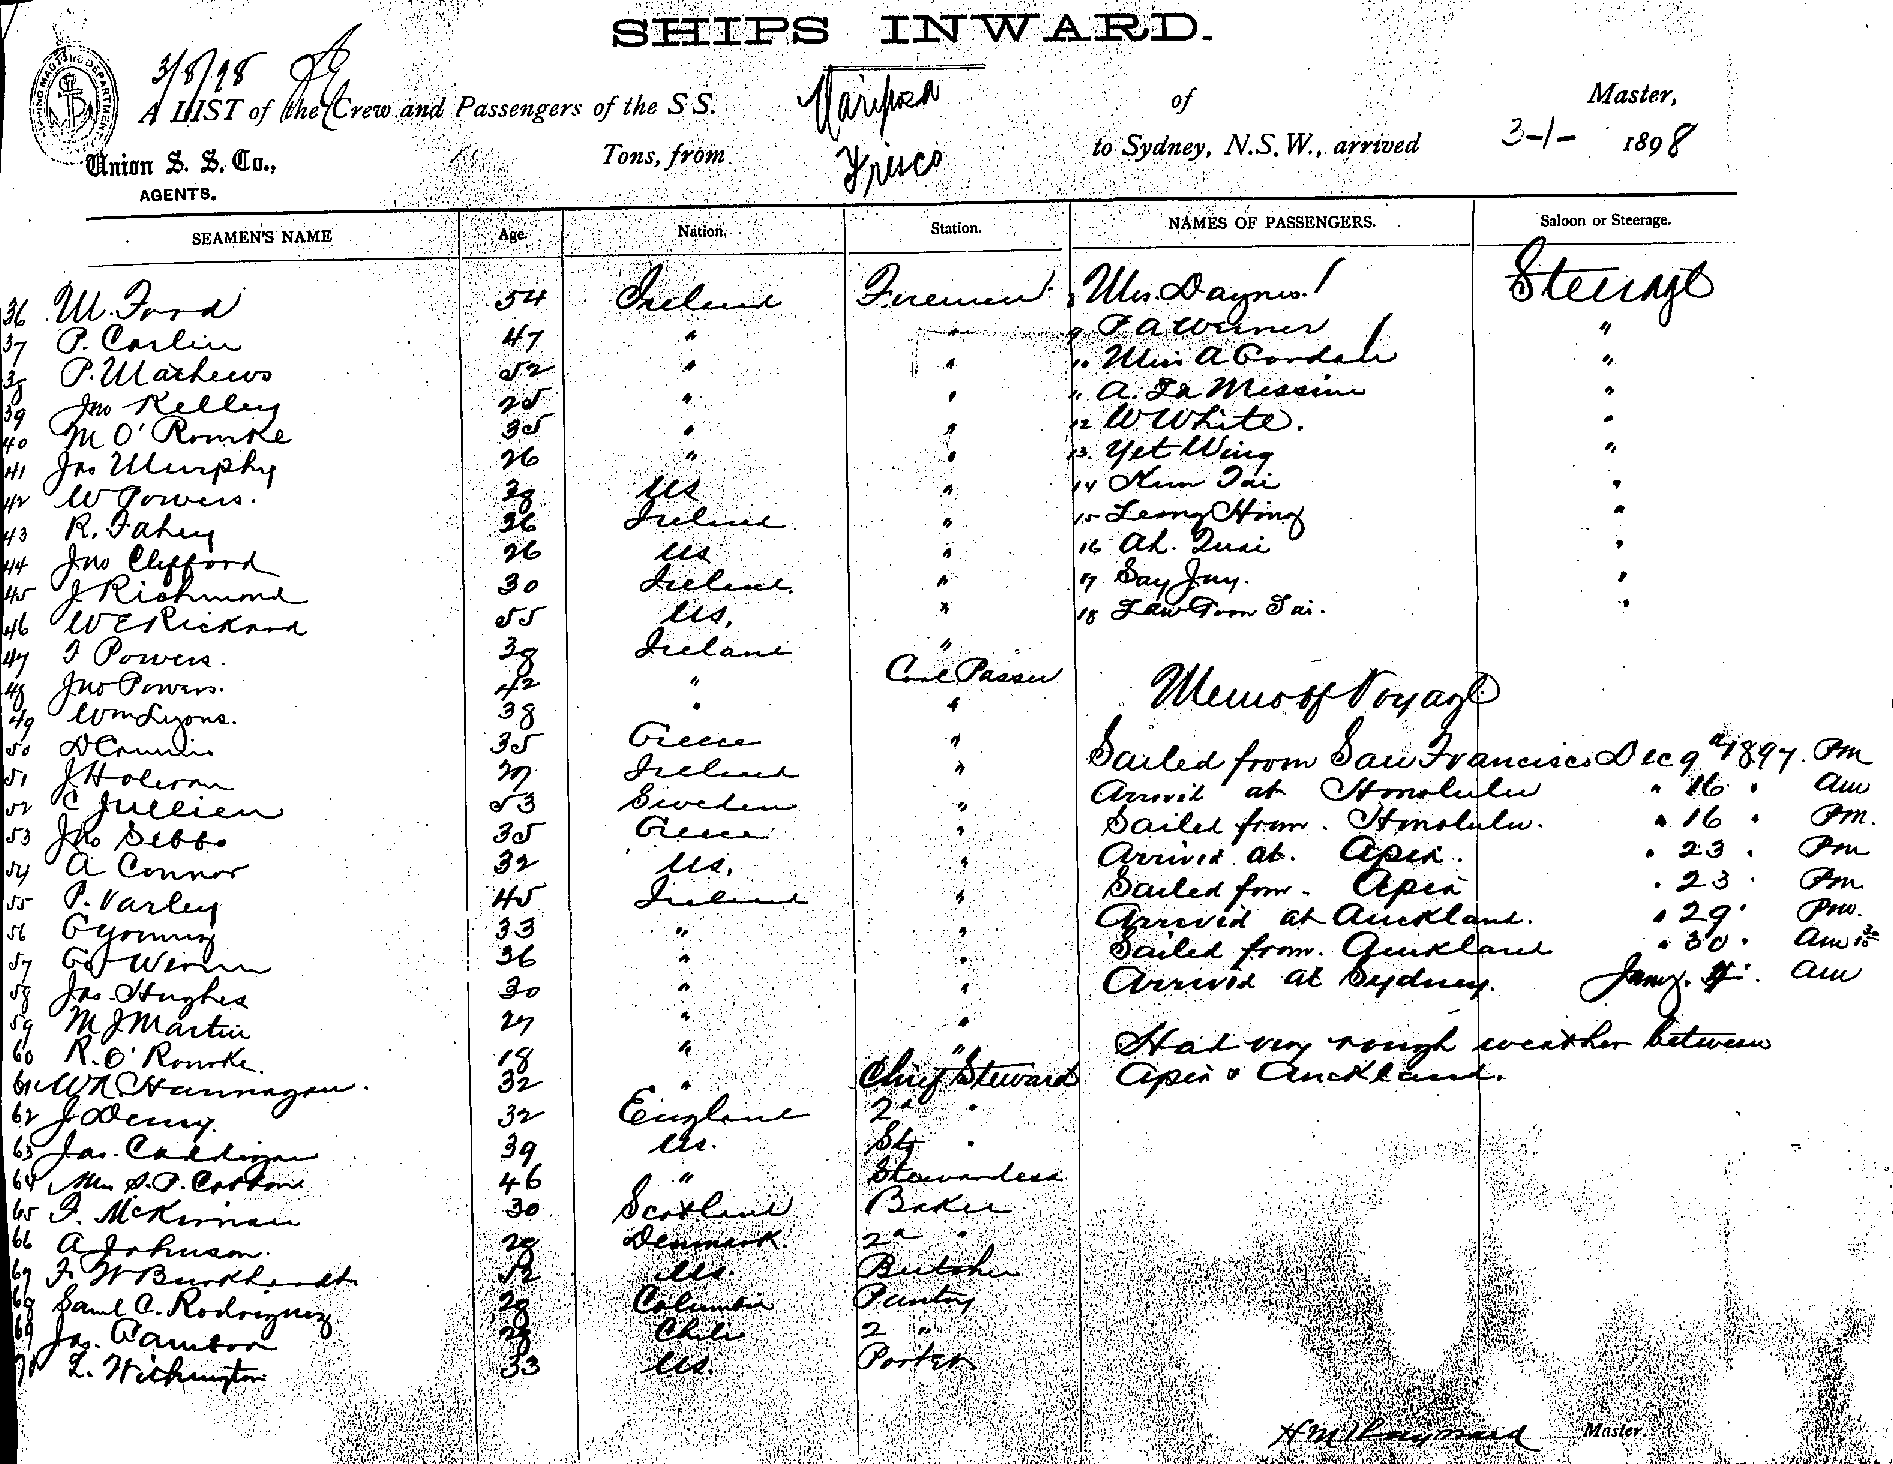 SHIPS INWARD.
3/8/98
A LIST of the Crew and Passengers of the S S. Mariposa of Master,
Union S. S. Co., Tons, from Frisco to Sydney, N.S.W., arrived 3-1- 1898
AGENTS.
SEAMEN'S NAME Age. Nation. Station. NAMES OF PASSENGERS. Saloon or Steerage.
36 M. Ford 54 Ireland Firemen Mrs. Daynes. Steerage
37 P. Carlin 47 " " 9 "
38 P. Mathews 52 " " 10 Miss A "
39 Jno Kelley 25 " " 11 A. La Messine "
40 M O'Rourke 35 " " 12 W White. "
41 Jas Murphy 26 " " 13 Yet Wing "
42 W Powers. 38 US " 14 Kum Tai "
43 R. Fahey 36 Ireland " 15 Leong Hing "
44 Jno Clifford 26 US " 16 Ah. Quai "
45 J. Richmond 30 Ireland " 17 Say Juy. "
46 W E Rickard 55 US. " 18 Law Toon Tai. "
47 J Powers. 38 Ireland "
48 Jno Powers. 42 " Coal Passer
49 Wm Lyons. 38 " "
Memo of Voyage
50 35 Greece "
51 J. 27 Ireland "
52 C Jullien 53 Sweden "
53 Jno Sebbo 35 Greece "
54 A Connor 32 US. "
55 P. Varley 45 Ireland "
56 33 " "
57 36 " "
58 Jas. Hughes 30 " "
59 M J Martin 27 " "
60 R. O'Rourke. 18 " "
61 W R Hannagan. 32 " Chief Steward
62 J Denny. 32 England 2d "
63 Jas. Cardigan 39 US. Stg "
64 Mrs S. P. 46 " Stewardess
65 J. McKirnan 30 Scotland Baker
66 A Johnson. 29 Denmark. 2d "
67 J. W Burkhardt 52 US. Butcher
68 Saml C. Rodriguez 28 Columbia Pantry
69 Jas. 28 Chili 2 "
70 L. Withington 33 US. Porter
Sailed from San Francisco Dec 9th 1897. Pm
Arrived at Honolulu " 16 " Am
Sailed from. Honolulu. " 16 " Pm.
Arrived at. Apia. " 23 " Pm
Sailed from. Apia " 23 " Pm
Arrived at Auckland. " 29 " Pm.
Sailed from. Auckland " 30 " Am
Arrived at Sydney. Jany. Am
Had very rough weather between
Apia & Auckland.
H M Hayward Master.